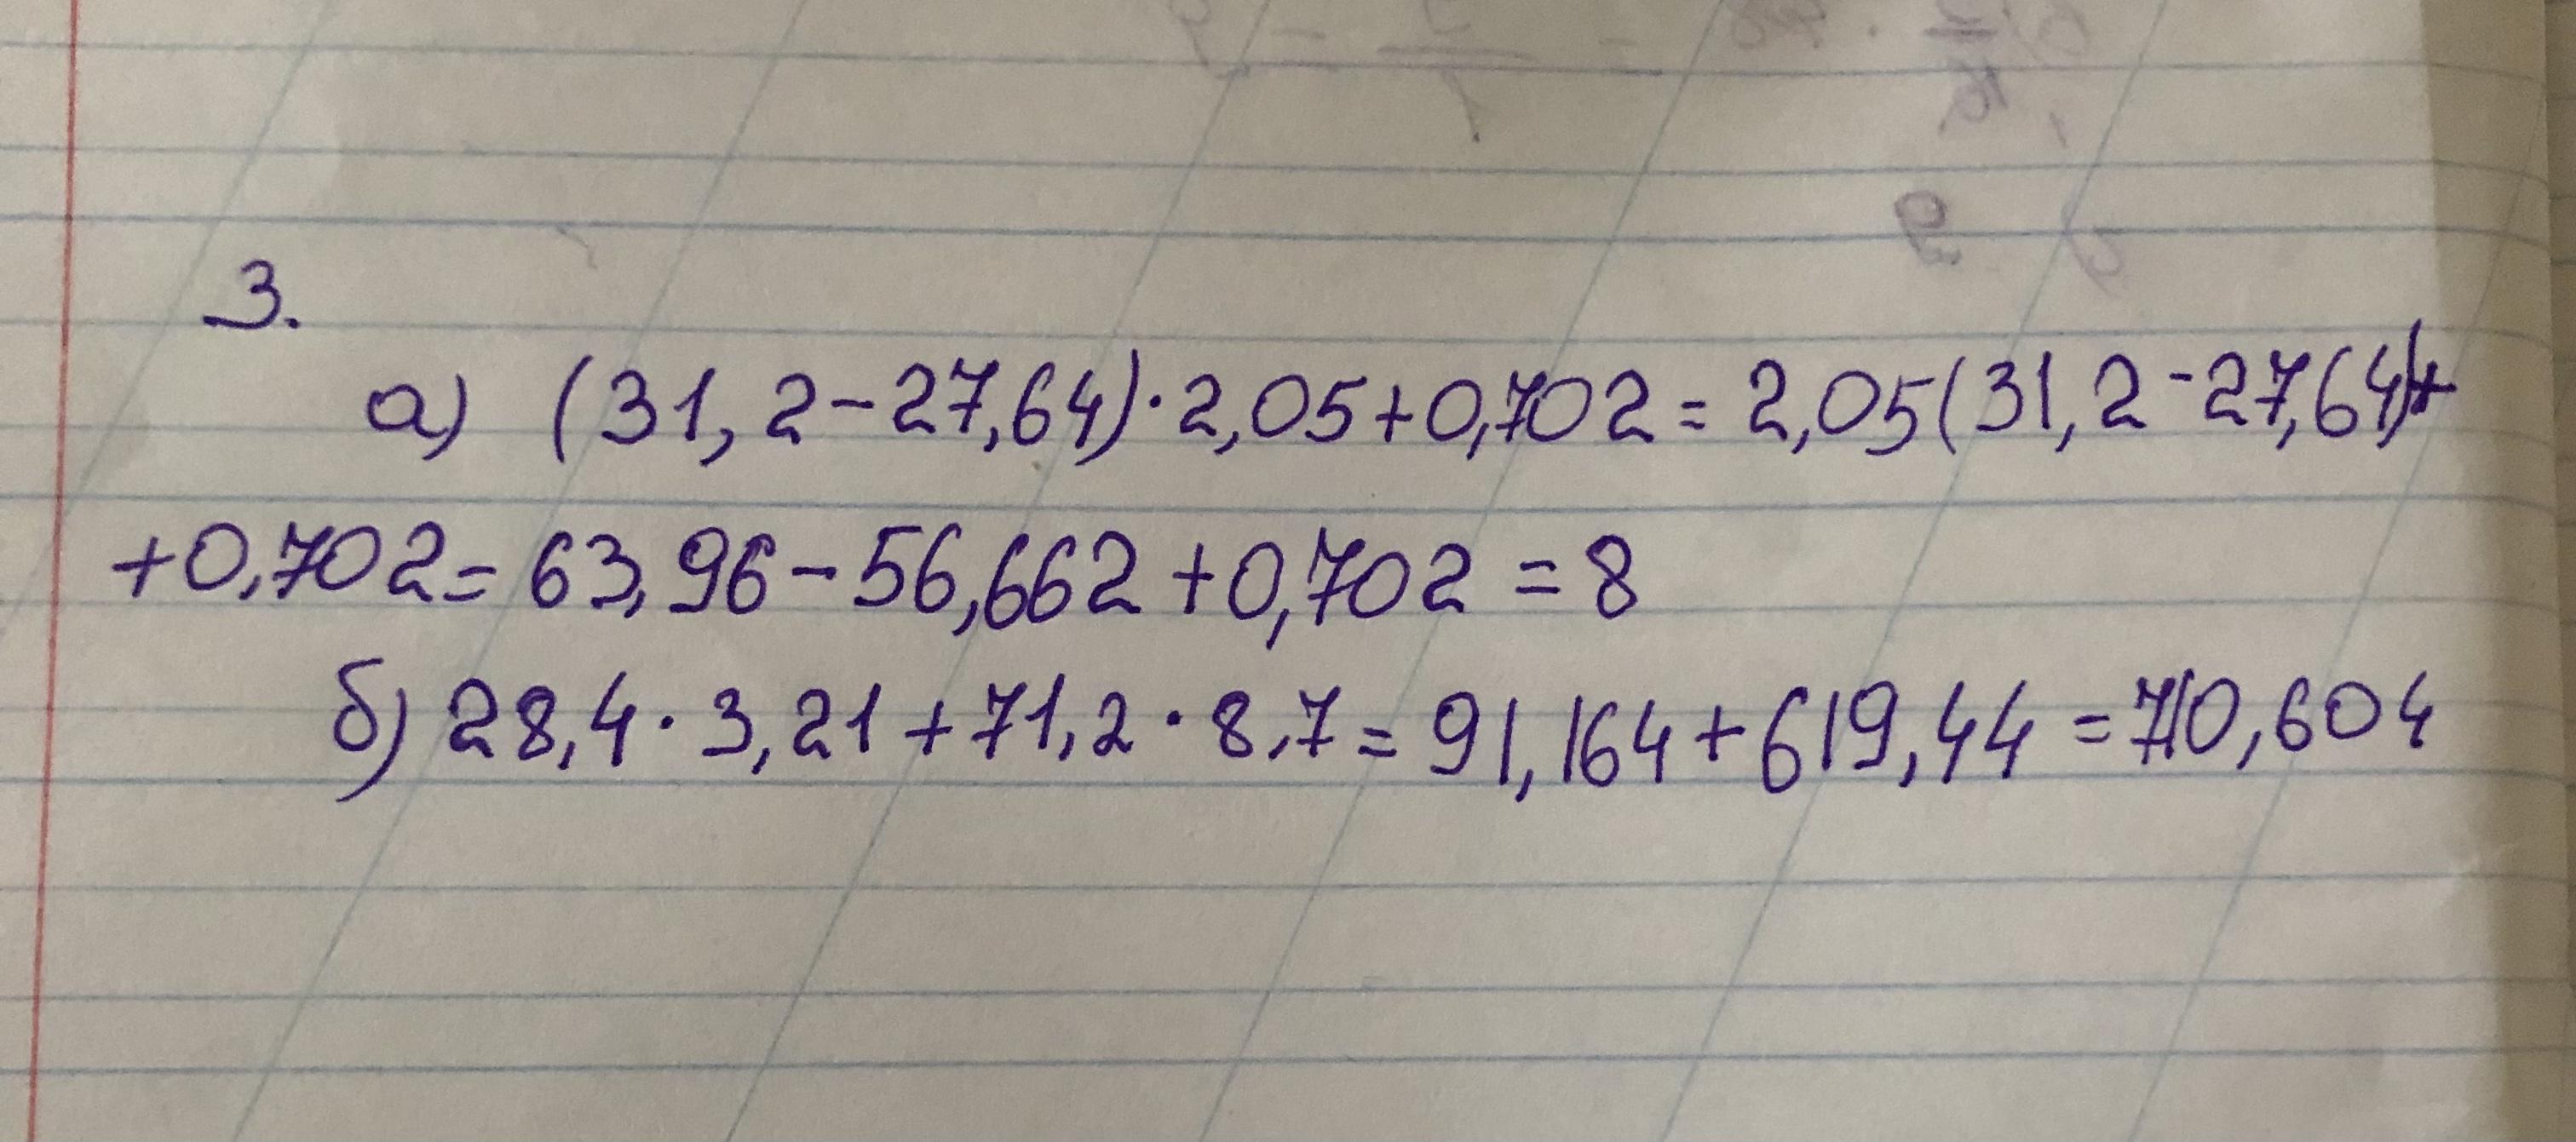 3.
а) (31,2-27,64)·2,05+0,702=2,05(31,2-27,64)+
+0,702=63,96-56,662+0,702=8
б) 28,4·3,21+71,2·8,7=91,164+619,44=710,604